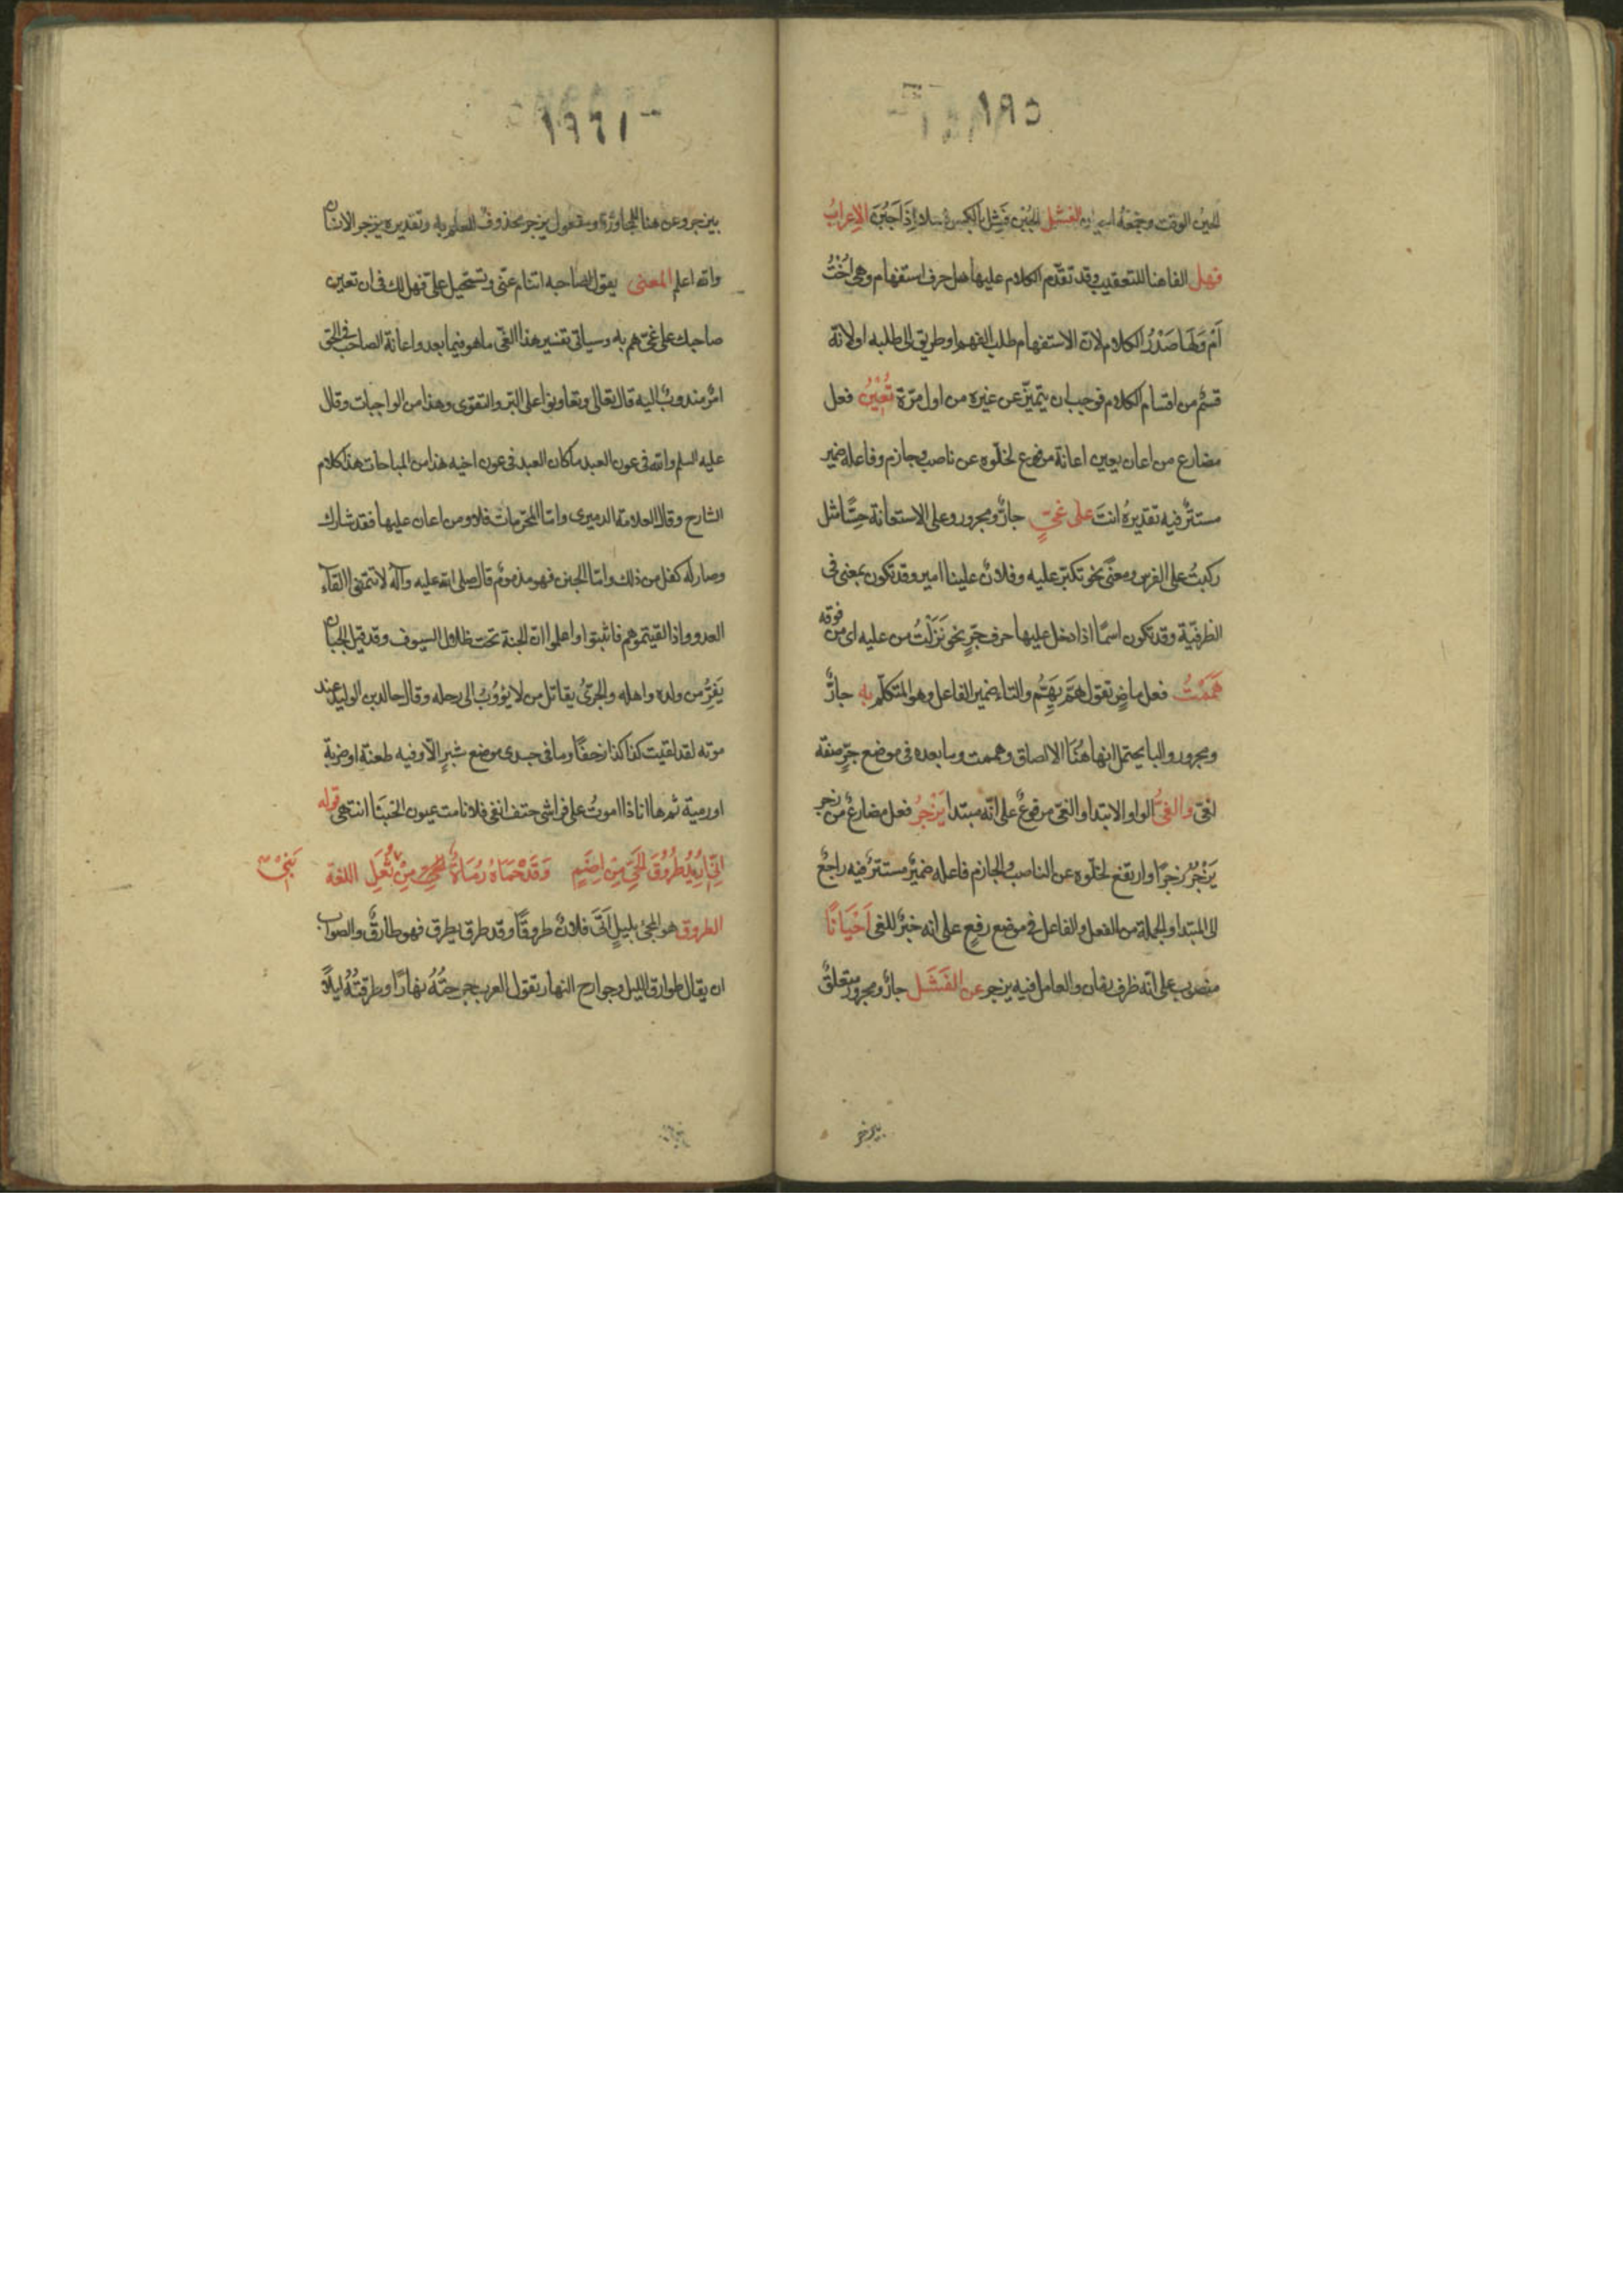 ١٩٥
الحين الوقت وجمعه احيان الفشل الجبن فشل بالكسر فشلا اِذَا جَبُنَ الاعرابُ
فهل الفا هنا للتعقيب وقد تقدّم الكلام عليها هل حرف استفهام وهى اُخْتُ
اَمْ وَلَهَا صَدْرُ الكلام لان الاستفهام طلب الفهم او طريق الى طلبه او لانه
قسمٌ من اقسام الكلام فوجب ان يتميّز عن غيره من اول مرّة تُعِيْنُ فعل
مضارع من اعان يعين اعانة مرفوع لخلّوه عن ناصب وجازم وفاعله ضمير
مستترٌ فيه تقديرهُ انتَ على غىٍّ جارٌّ ومجرور وعلى الاستعانة حِسًّا مثل
ركبتُ على الفرس ومعنًى نحو تكبّر عليه وفلانٌ علينا امير وقد تكون بمعنى فى
الظرفيّة وقد تكون اسمًا اذا دخل عليها حرف جرٍّ نحو نَزَلَتُ من عليه اى من فوقه
هَمَمْتُ فعل ماضٍ تقول هَمَّ يَهُمُّ والتاء ضمير الفاعل وهو المتكلّم به جارٌّ
ومجرور والبا يحتمل انها هُنَا الالصاق وهممت وما بعده فى موضع جرٍّ صفة
لغىّ والغىُّ الواو الابتدا والغىّ مرفوعٌ على انّه مبتدا يَزْجُرُ فعل مضارعٌ من زجر
يَزْجُرُ زجرًا وارتفع لخلّوه عن الناصب والجازم فاعله ضميرٌ مستترٌ فيه راجعٌ
الى المبتدا والجملة من الفعل والفاعل فى موضع رفعٍ على انه خبرٌ للغى اَحْيَانًا
منصوب على انّه ظرف زمان والعامل فيه يزجر عن الفَشَل جارٌّ ومجرورٌ متعلقٌ
بيزجر
١٩٦
بيزجر وعن هنا للمجاوزة ومفعول يزجر محذوفٌ للعلم به وتقديره يزجر الانسان
والله اعلم المعنى يقول لصاحبه اتنام عنّى وتستحيل علىّ فهل لك فى ان تعين
صاحبك على غىّ هم به وسياتى تفسير هذا الغىّ ما هو فيما بعد واعانة الصاحب فى الحق
امرٌ مندوبٌ اليه قال تعالى وتعاونوا على البرّ والتقوى وهذا من الواجبات وقال
عليه السلم والله فى عون العبد ما كان العبد فى عون اخيه هذا من المباحات هذا كلام
الشارح وقال العلامة الدميرى وامّا المحرّمات فلا ومن اعان عليها فقد شارك
وصار له كفل من ذلك وامّا الجبن فهو مذمومٌ قال صلى الله عليه وآله لا تتمنوا لقآء
العدو واذا لقيتموهم فاثبتوا واعلموا انّ الجنة تحت ظلال السيوف وقد قيل الجبان
يَفِرُّ من ولده واهله والجرىُّ يقاتل من لا يؤوبُ الى رحله وقال خالد بن الوليد عند
موته لقد لقيت كذا كذا زحفًا وما فى جسدى موضع شبرٍ الّا وفيه طعنة او ضربة
او رمية ثم ها انا ذا اموتُ على فراشى حتف انفى فلا نامت عيون الجبنَا انتهى قوله
اِنِّى اُرِيْدُ طُرُوْقَ الحَىِّ مِنْ اِضَمٍ وَقَدْ حَمَاهُ رُمَاةُ الحَىِّ مِنْ ثُعَلِ اللغة
بَنِىْ
الطروق هو المجئ بليلٍ اَتَى فلانٌ طروقًا وقد طرق يطرق فهو طارقٌ والصواب
ان يقال طوارق الليل وجوارح النهار تقول العرب جرحتُهُ نهارًا وطرقتُهُ ليلًا